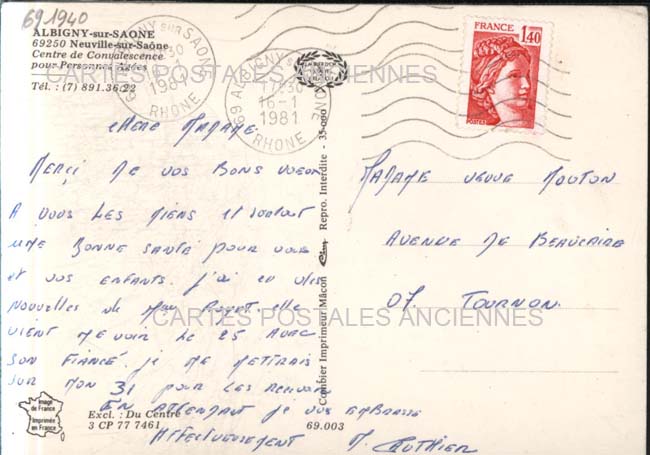 691940
ALBIGNY-sur-SAONE
69250 Neuville-sur-Saône
Centre de Convalescence
pour Personnes Agées
Tél. : (7) 891.36.22
ALBIGNY SUR SAONE
1981
69 RHONE
69 ALBIGNY SUR SAONE
17H30
16-1
1981
RHONE
FRANCE
1,40
CARTES POSTALES ANCIENNES
chère Madame
Merci de vos bons voeux
A vous les miens et surtout
une bonne santé pour vous
et vos enfants. j'ai eu des
nouvelles de elle
vient me voir le 25 avec
son fiancé. je me mettrais
sur mon 31 pour les recevoir
En attendant je vous embrasse
affectueusement M. Guthier
Madame veuve Mouton
Avenue de Beaucaire
07. Tournon
CARTES POSTALES ANCIENNES
Combier Imprimeur Mâcon Repro. Interdite - 35-000
Image
de France
Imprimée
en France
Excl. : Du Centre
3 CP 77 7461
69.003